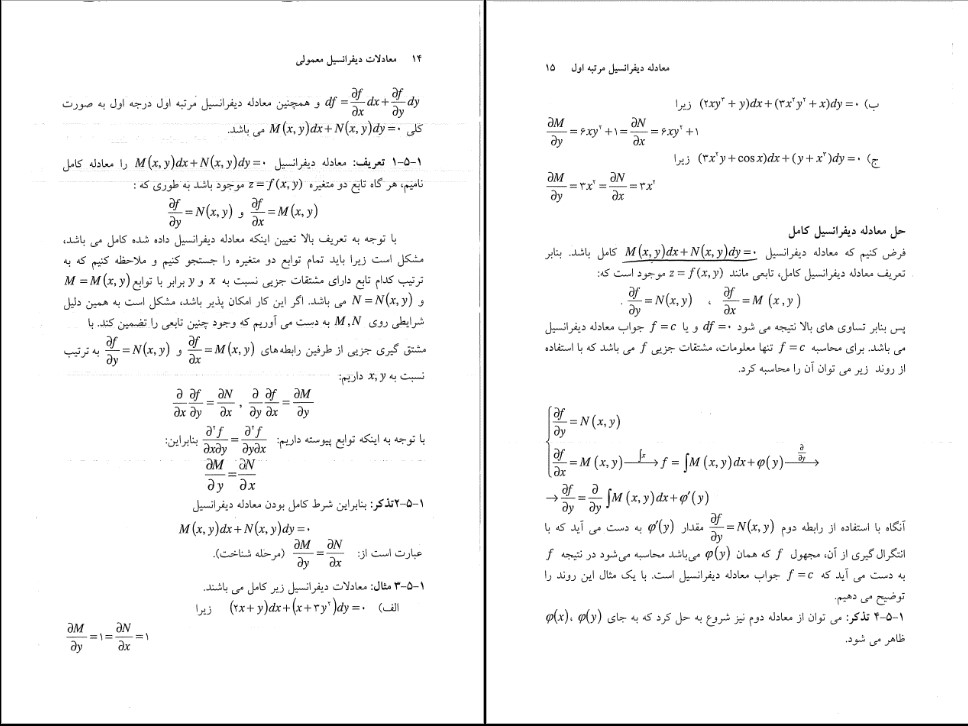 ۱۴ معادلات دیفرانسیل معمولی
df = ∂f/∂x dx + ∂f/∂y dy و همچنین معادله دیفرانسیل مرتبه اول درجه اول به صورت
کلی M(x, y)dx + N(x, y)dy = ۰ می باشد.
۱-۵-۱ تعریف: معادله دیفرانسیل M(x, y)dx + N(x, y)dy = ۰ را معادله کامل
نامیم، هر گاه تابع دو متغیره z = f(x, y) موجود باشد به طوری که :
∂f/∂y = N(x, y) و ∂f/∂x = M(x, y)
با توجه به تعریف بالا تعیین اینکه معادله دیفرانسیل داده شده کامل می باشد،
مشکل است زیرا باید تمام توابع دو متغیره را جستجو کنیم و ملاحظه کنیم که به
ترتیب کدام تابع دارای مشتقات جزیی نسبت به x و y برابر با توابع M = M(x, y)
و N = N(x, y) می باشد. اگر این کار امکان پذیر باشد، مشکل است به همین دلیل
شرایطی روی M, N به دست می آوریم که وجود چنین تابعی را تضمین کند. با
مشتق گیری جزیی از طرفین رابطه‌های ∂f/∂x = M(x, y) و ∂f/∂y = N(x, y) به ترتیب
نسبت به x, y داریم:
∂/∂x ∂f/∂y = ∂N/∂x , ∂/∂y ∂f/∂x = ∂M/∂y
با توجه به اینکه توابع پیوسته داریم: ∂²f/∂x∂y = ∂²f/∂y∂x بنابراین:
∂M/∂y = ∂N/∂x
۱-۵-۲تذکر: بنابراین شرط کامل بودن معادله دیفرانسیل
M(x, y)dx + N(x, y)dy = ۰
عبارت است از: ∂M/∂y = ∂N/∂x (مرحله شناخت).
۱-۵-۳ مثال: معادلات دیفرانسیل زیر کامل می باشند.
الف) (۲x + y)dx + (x + ۳y²)dy = ۰ زیرا
∂M/∂y = ۱ = ∂N/∂x = ۱
معادله دیفرانسیل مرتبه اول ۱۵
ب) (۲xy³ + y)dx + (۳x²y² + x)dy = ۰ زیرا
∂M/∂y = ۶xy² + ۱ = ∂N/∂x = ۶xy² + ۱
ج) (۳x²y + cos x)dx + (y + x³)dy = ۰ زیرا
∂M/∂y = ۳x² = ∂N/∂x = ۳x²
حل معادله دیفرانسیل کامل
فرض کنیم که معادله دیفرانسیل M(x, y)dx + N(x, y)dy = ۰ کامل باشد. بنابر
تعریف معادله دیفرانسیل کامل، تابعی مانند z = f(x, y) موجود است که:
∂f/∂x = M(x, y) ، ∂f/∂y = N(x, y) .
پس بنابر تساوی های بالا نتیجه می شود df = ۰ و یا f = c جواب معادله دیفرانسیل
می باشد. برای محاسبه f = c تنها معلومات، مشتقات جزیی f می باشد که با استفاده
از روند زیر می توان آن را محاسبه کرد.
∂f/∂y = N(x, y)
∂f/∂x = M(x, y) ∫x→ f = ∫M(x, y)dx + φ(y) ∂/∂y→
→ ∂f/∂y = ∂/∂y ∫M(x, y)dx + φ′(y)
آنگاه با استفاده از رابطه دوم ∂f/∂y = N(x, y) مقدار φ′(y) به دست می آید که با
انتگرال گیری از آن، مجهول f که همان φ(y) می‌باشد محاسبه می‌شود در نتیجه f
به دست می آید که f = c جواب معادله دیفرانسیل است. با یک مثال این روند را
توضیح می دهیم.
۱-۵-۴ تذکر: می توان از معادله دوم نیز شروع به حل کرد که به جای φ(y)، φ(x)
ظاهر می شود.